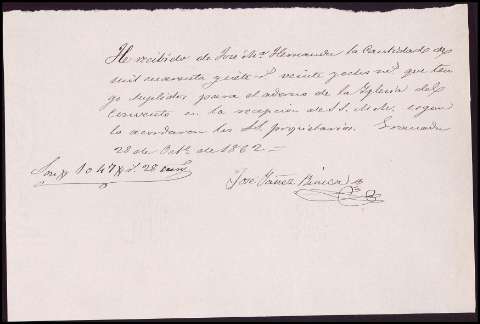 He recibido de José Mª Hernandez la Cantidad de
mil cuarenta y siete rs veinte y ocho ms que ten
go suplidos para el adorno de la Iglesia del
Convento en la recepcion de SS. M.M. segun
lo acordaron los SS. propietarios. Granada
28 de Octe de 1862.
Son 1047 rs 28
Jose Yañez